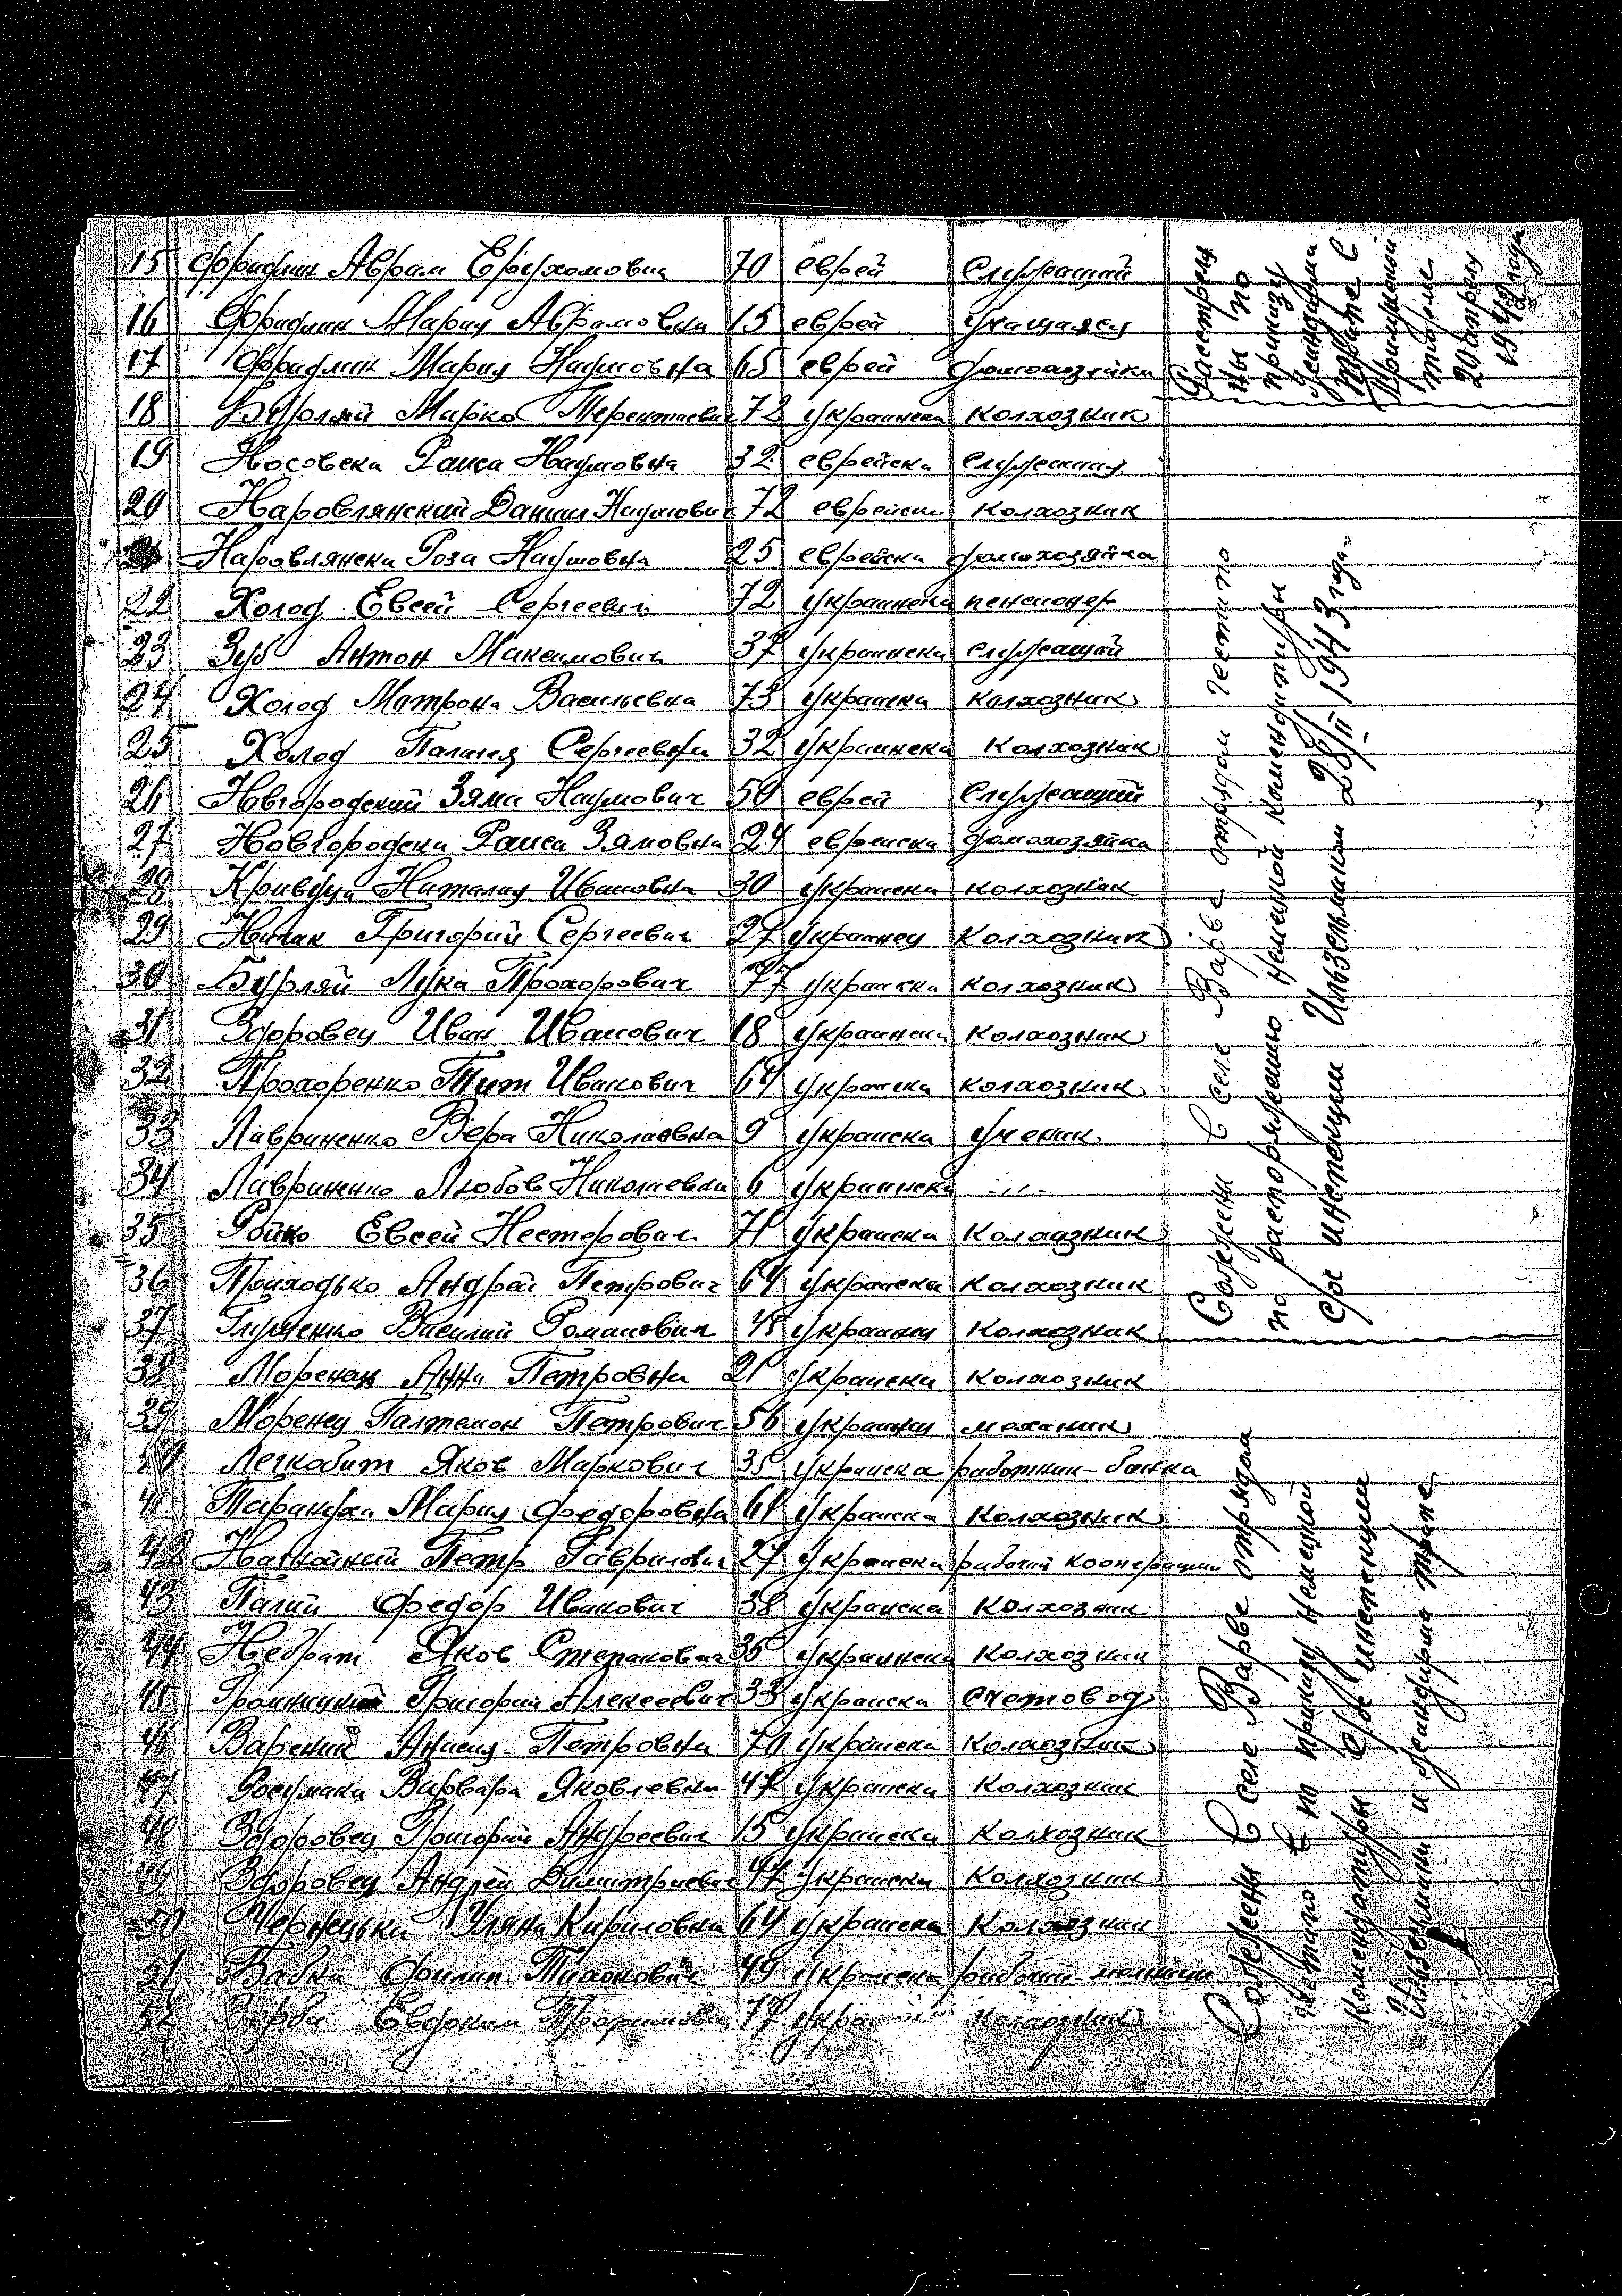 15 Фридлин Аврам Ерухомович 70 еврей служащий
16 Фридлин Мария Аврамовна 15 еврей учащаяся
17 Фридлин Мария Наумовна 65 еврей домохозяйка
18 Бурляй Марко Терентиевич 72 украинска колхозник
19 Носовска Раиса Наумовна 32 еврейска служащая
20 Наровлянский Данил Наумович 72 еврейски колхозник
Наровлянска Роза Наумовна 25 еврейска домохозяйка
22 Холод Евсей Сергеевич 72 украинска пенсионер
23 Зуб Антон Максимович 37 украински служащий
24 Холод Матрона Васильевна 73 украиска колхозник
25 Холод Палагея Сергеевна 32 украинска колхозник
26 Новгородский Зяма Наумович 50 еврей служащий
27 Новгородска Раиса Зямовна 24 евреиска домохозяйка
28 Кривуца Наталия Ивановна 30 украиска колхозник
29 Григорий Сергеевич 27 украинец колхозник
30 Бурляй Лука Прохорович 77 украиска колхозник
31 Здоровец Иван Иванович 18 украинска колхозник
32 Прохоренко Тит Иванович 64 украиска колхозник
33 Лавриненко Вера Николаевна 9 украиска ученик
34 Лавриненко Любов Николаевна 6 украинска -"-
35 Ройко Евсей Несторович 71 украиска колхозник
36 Приходько Андрей Петрович 64 украиска колхозник
37 Глущенко Василий Романович 45 украинец колхозник
38 Моренец Анна Петровна 21 украиска колхозник
39 Моренец Палтемон Петрович 56 украинец механик
Легкобит Яков Маркович 35 украиска работник банка
41 Мария Федоровна 61 украиска колхозник
42 Петр Гаврилович 27 украиска рабочий кооперации
43 Палий Федор Иванович 38 украиска колхозник
44 Небрат Яков Степанович 35 украинска колхозник
45 Григорий Алексеевич 33 украиска счетовод
46 Вареник Анисия Петровна 70 украиска колхозник
47 Варвара Яковлевна 47 украиска колхозник
48 Здоровец Григорий Андреевич 15 украиска колхозник
49 Здоровец Андрей Димитриевич 47 украиска колхозник
50 Чернецька Уляна Кириловна 64 украиска колхозник
51 Бабка Филип Тихонович 49 украиска рабочий мельници
52 Верба Евдоким Трофимович 77 колхозник
Расстреля
ны по
приказу
жандарма
Трипе в
Прилукской
тюрме
20 апреля
1942 года
Сожжены в селе Варве отрядом гестапо
по распоряжению немецкой комендатуры
Сде инспекции Ильзельман 28/II 1943 года
Сожжены в селе Варве отрядом
гестапо по приказу немецкой
комендатуры Сде инспекции
Ильзельман и жандарма трипе